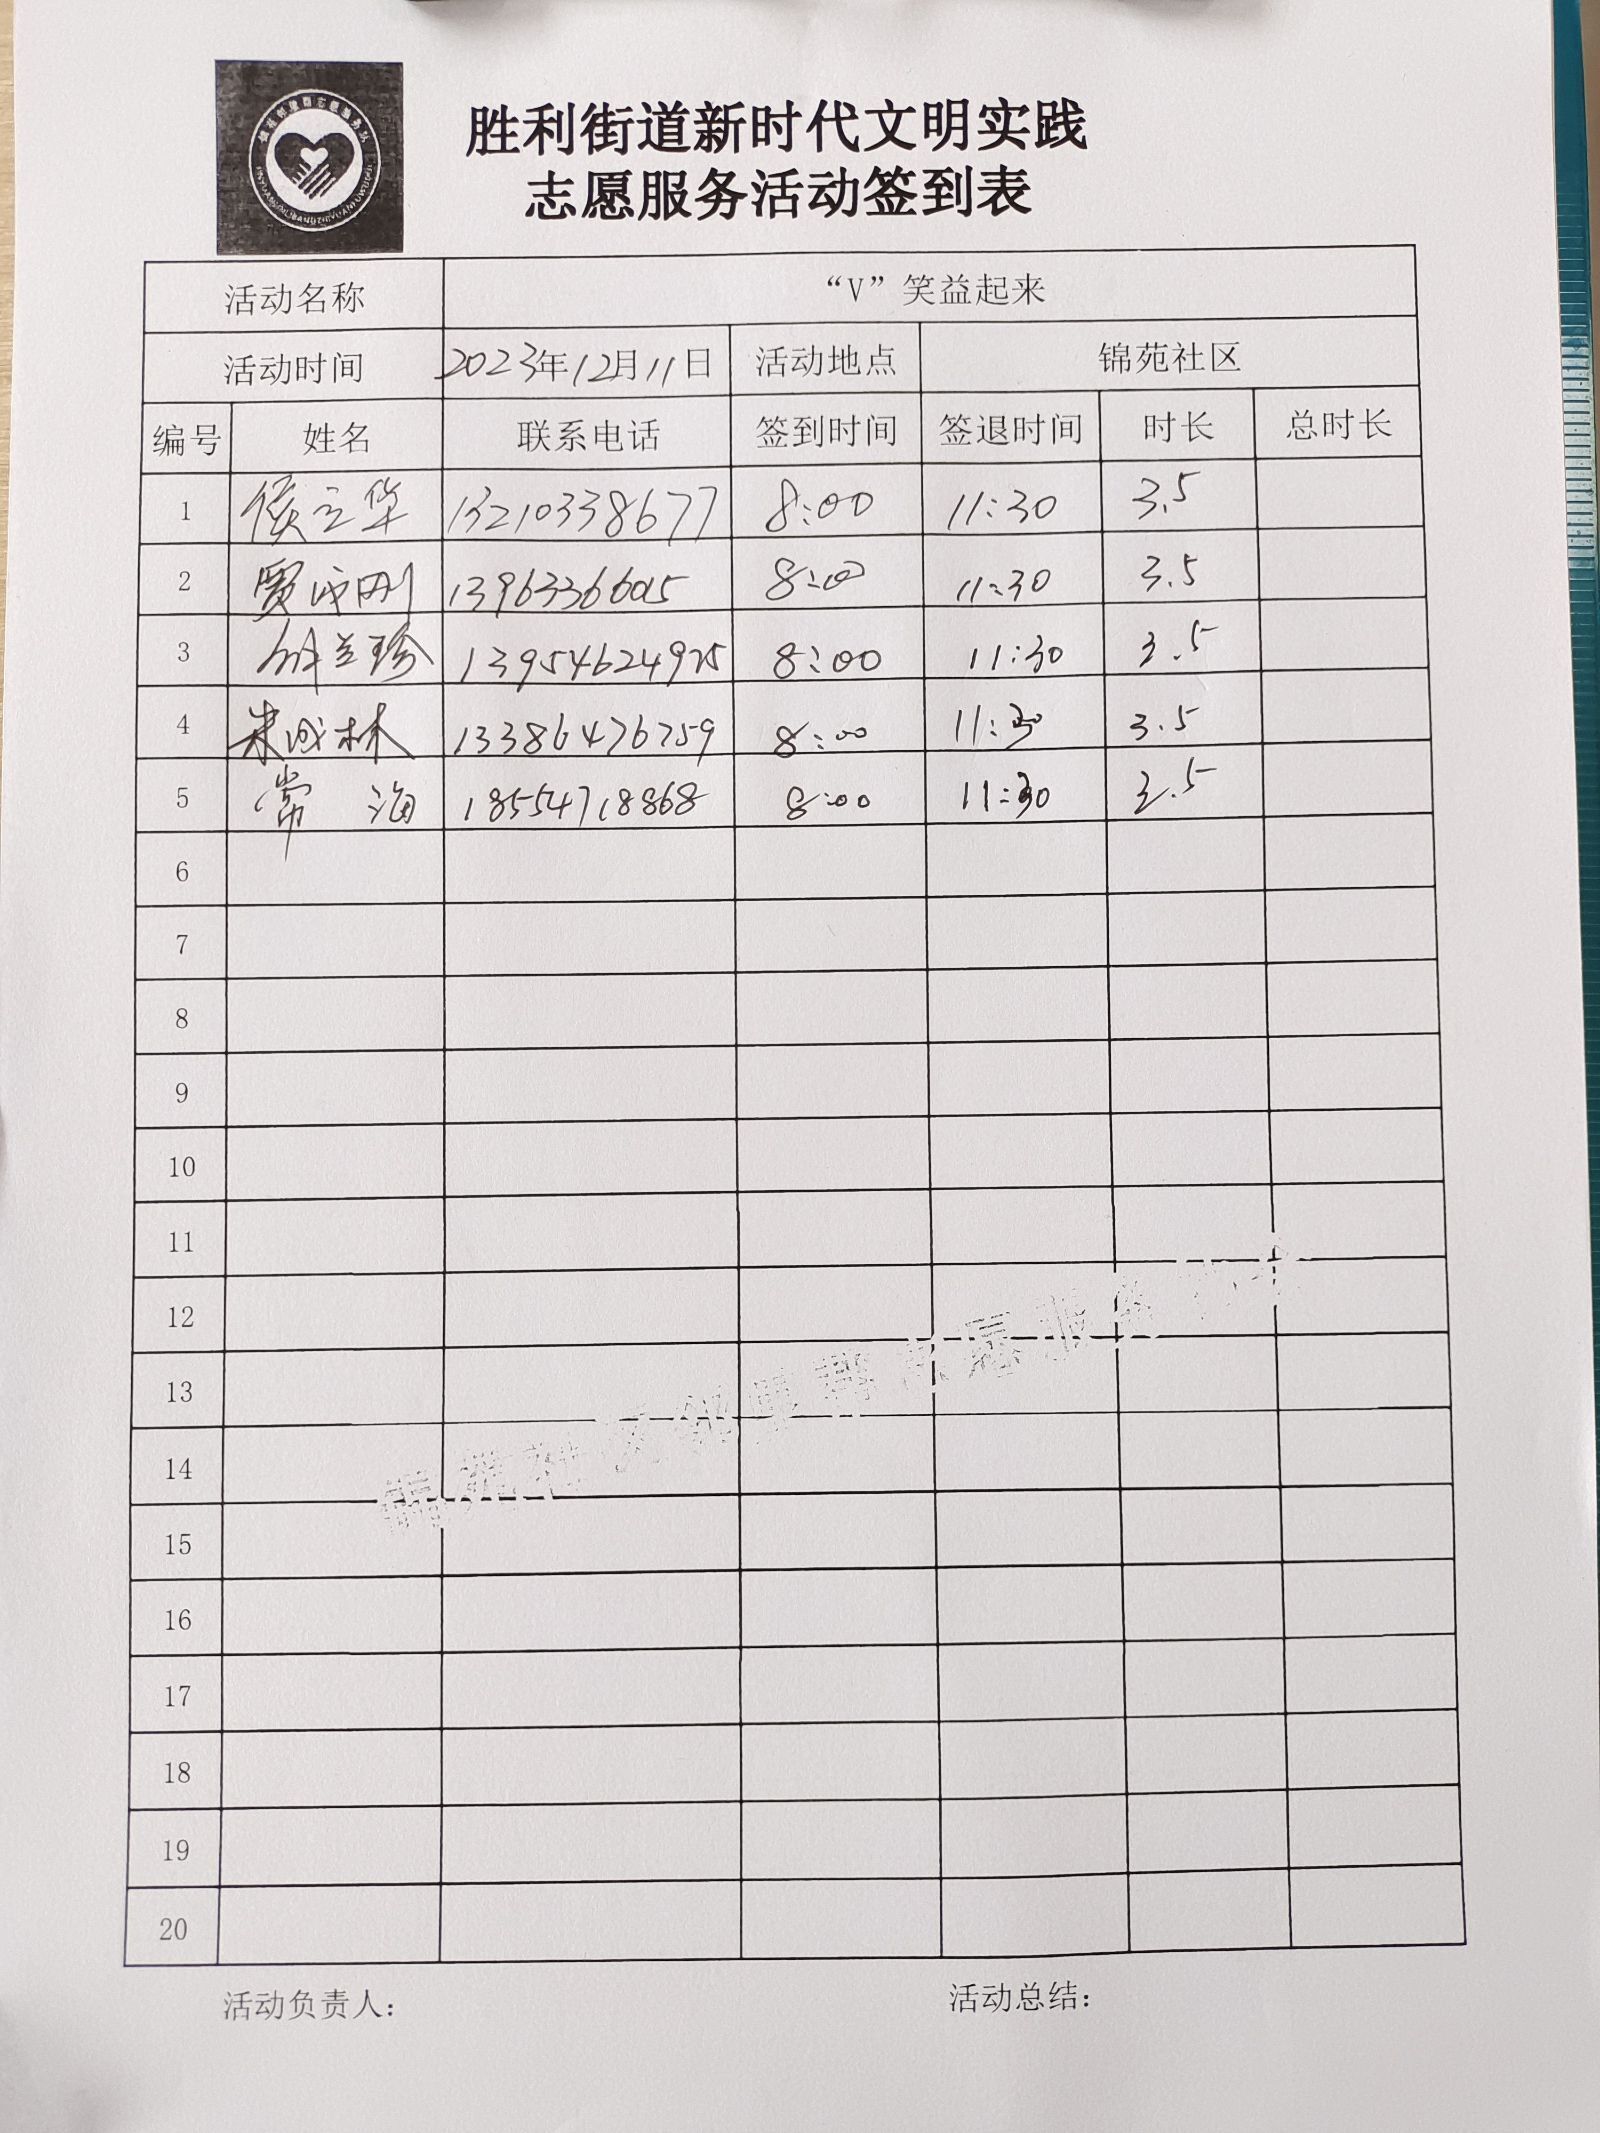 胜利街道新时代文明实践
志愿服务活动签到表
活动名称 “V”笑益起来
活动时间 2023年12月11日 活动地点 锦苑社区
编号 姓名 联系电话 签到时间 签退时间 时长 总时长
1 侯立华 13210338677 8:00 11:30 3.5
2 贾 刚 13963366015 8:00 11:30 3.5
3 兰珍 13954624925 8:00 11:30 3.5
4 朱成林 13386476759 8:00 11:30 3.5
5 常海 18554718868 8:00 11:30 3.5
6
7
8
9
10
11
12
13
14
15
16
17
18
19
20
活动负责人：
活动总结：